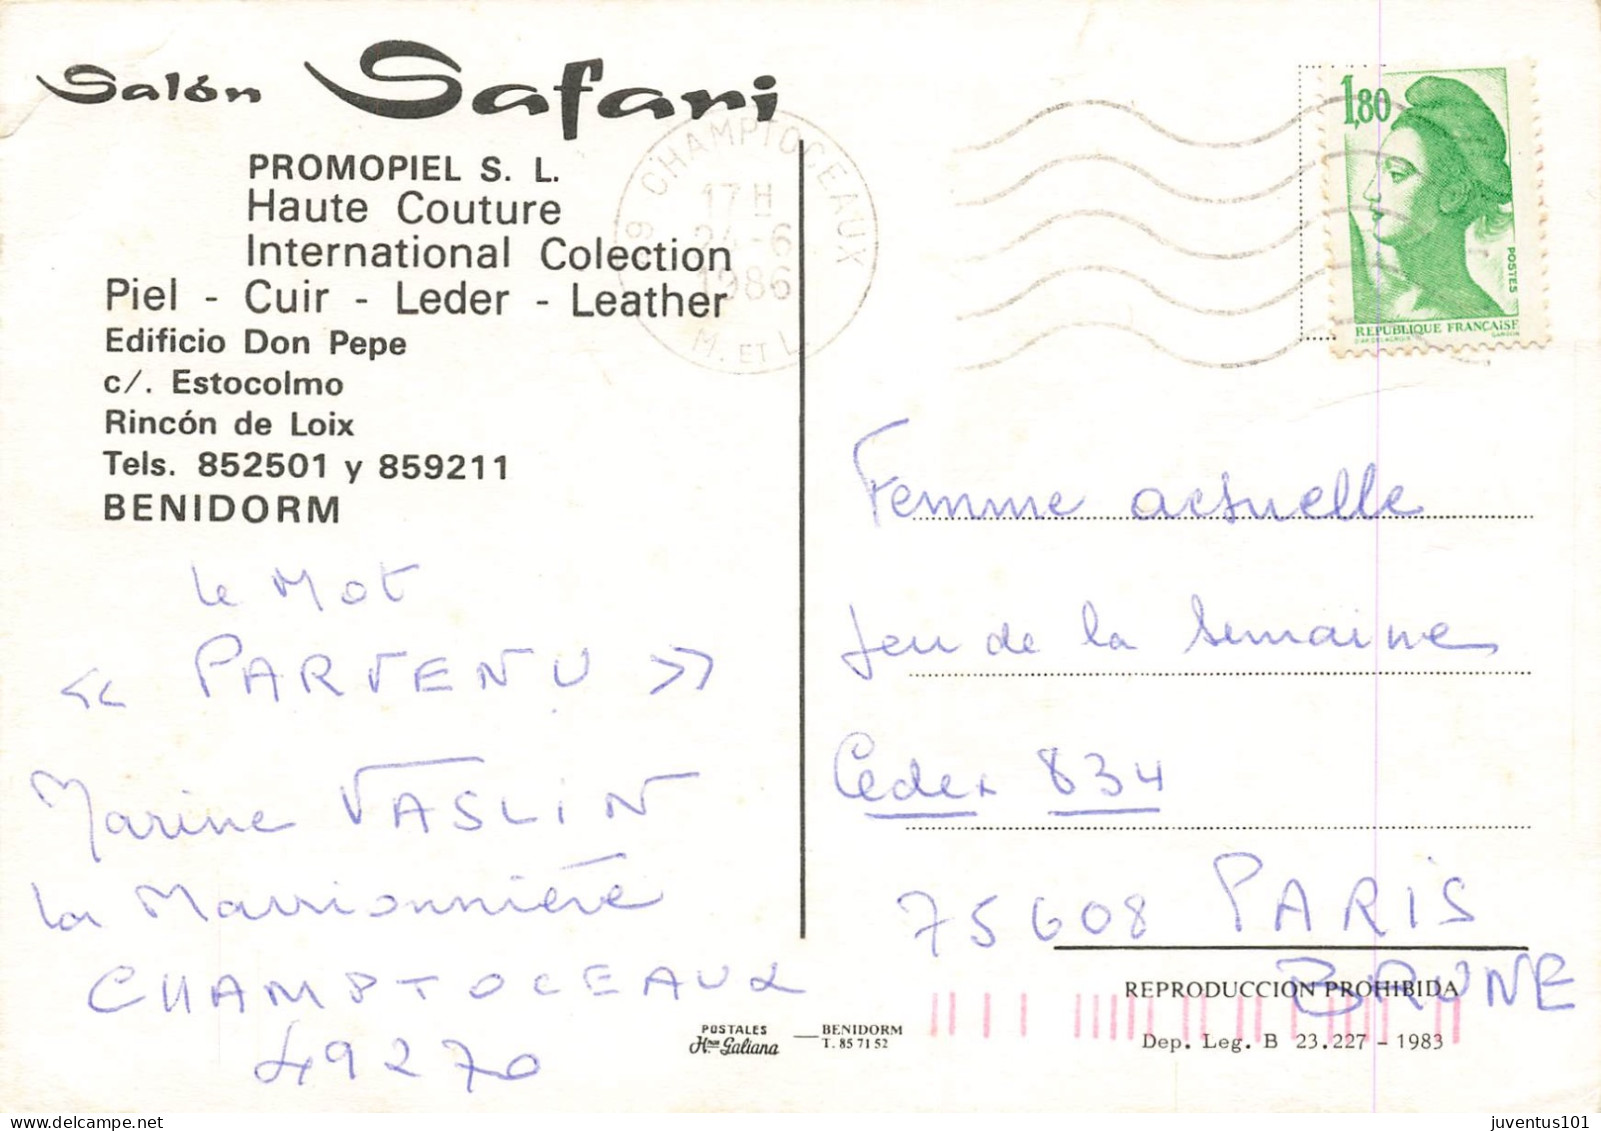 Salón Safari
PROMOPIEL S. L.
Haute Couture
International Colection
Piel - Cuir - Leder - Leather
Edificio Don Pepe
c/. Estocolmo
Rincón de Loix
Tels. 852501 y 859211
BENIDORM
le Mot
« PARVENU »
Marine VASLIN
La Marrionnière
CHAMPTOCEAUX
49270
CHAMPTOCEAUX
17 H
24-6
1986
M. ET L.
1,80
POSTES
REPUBLIQUE FRANÇAISE
Femme actuelle
Jeu de la Semaine
Cedex 834
75608 PARIS
BRUNE
REPRODUCCION PROHIBIDA
Dep. Leg. B 23.227 - 1983
POSTALES
Hnos Galiana
BENIDORM
T. 85 71 52
juventus101